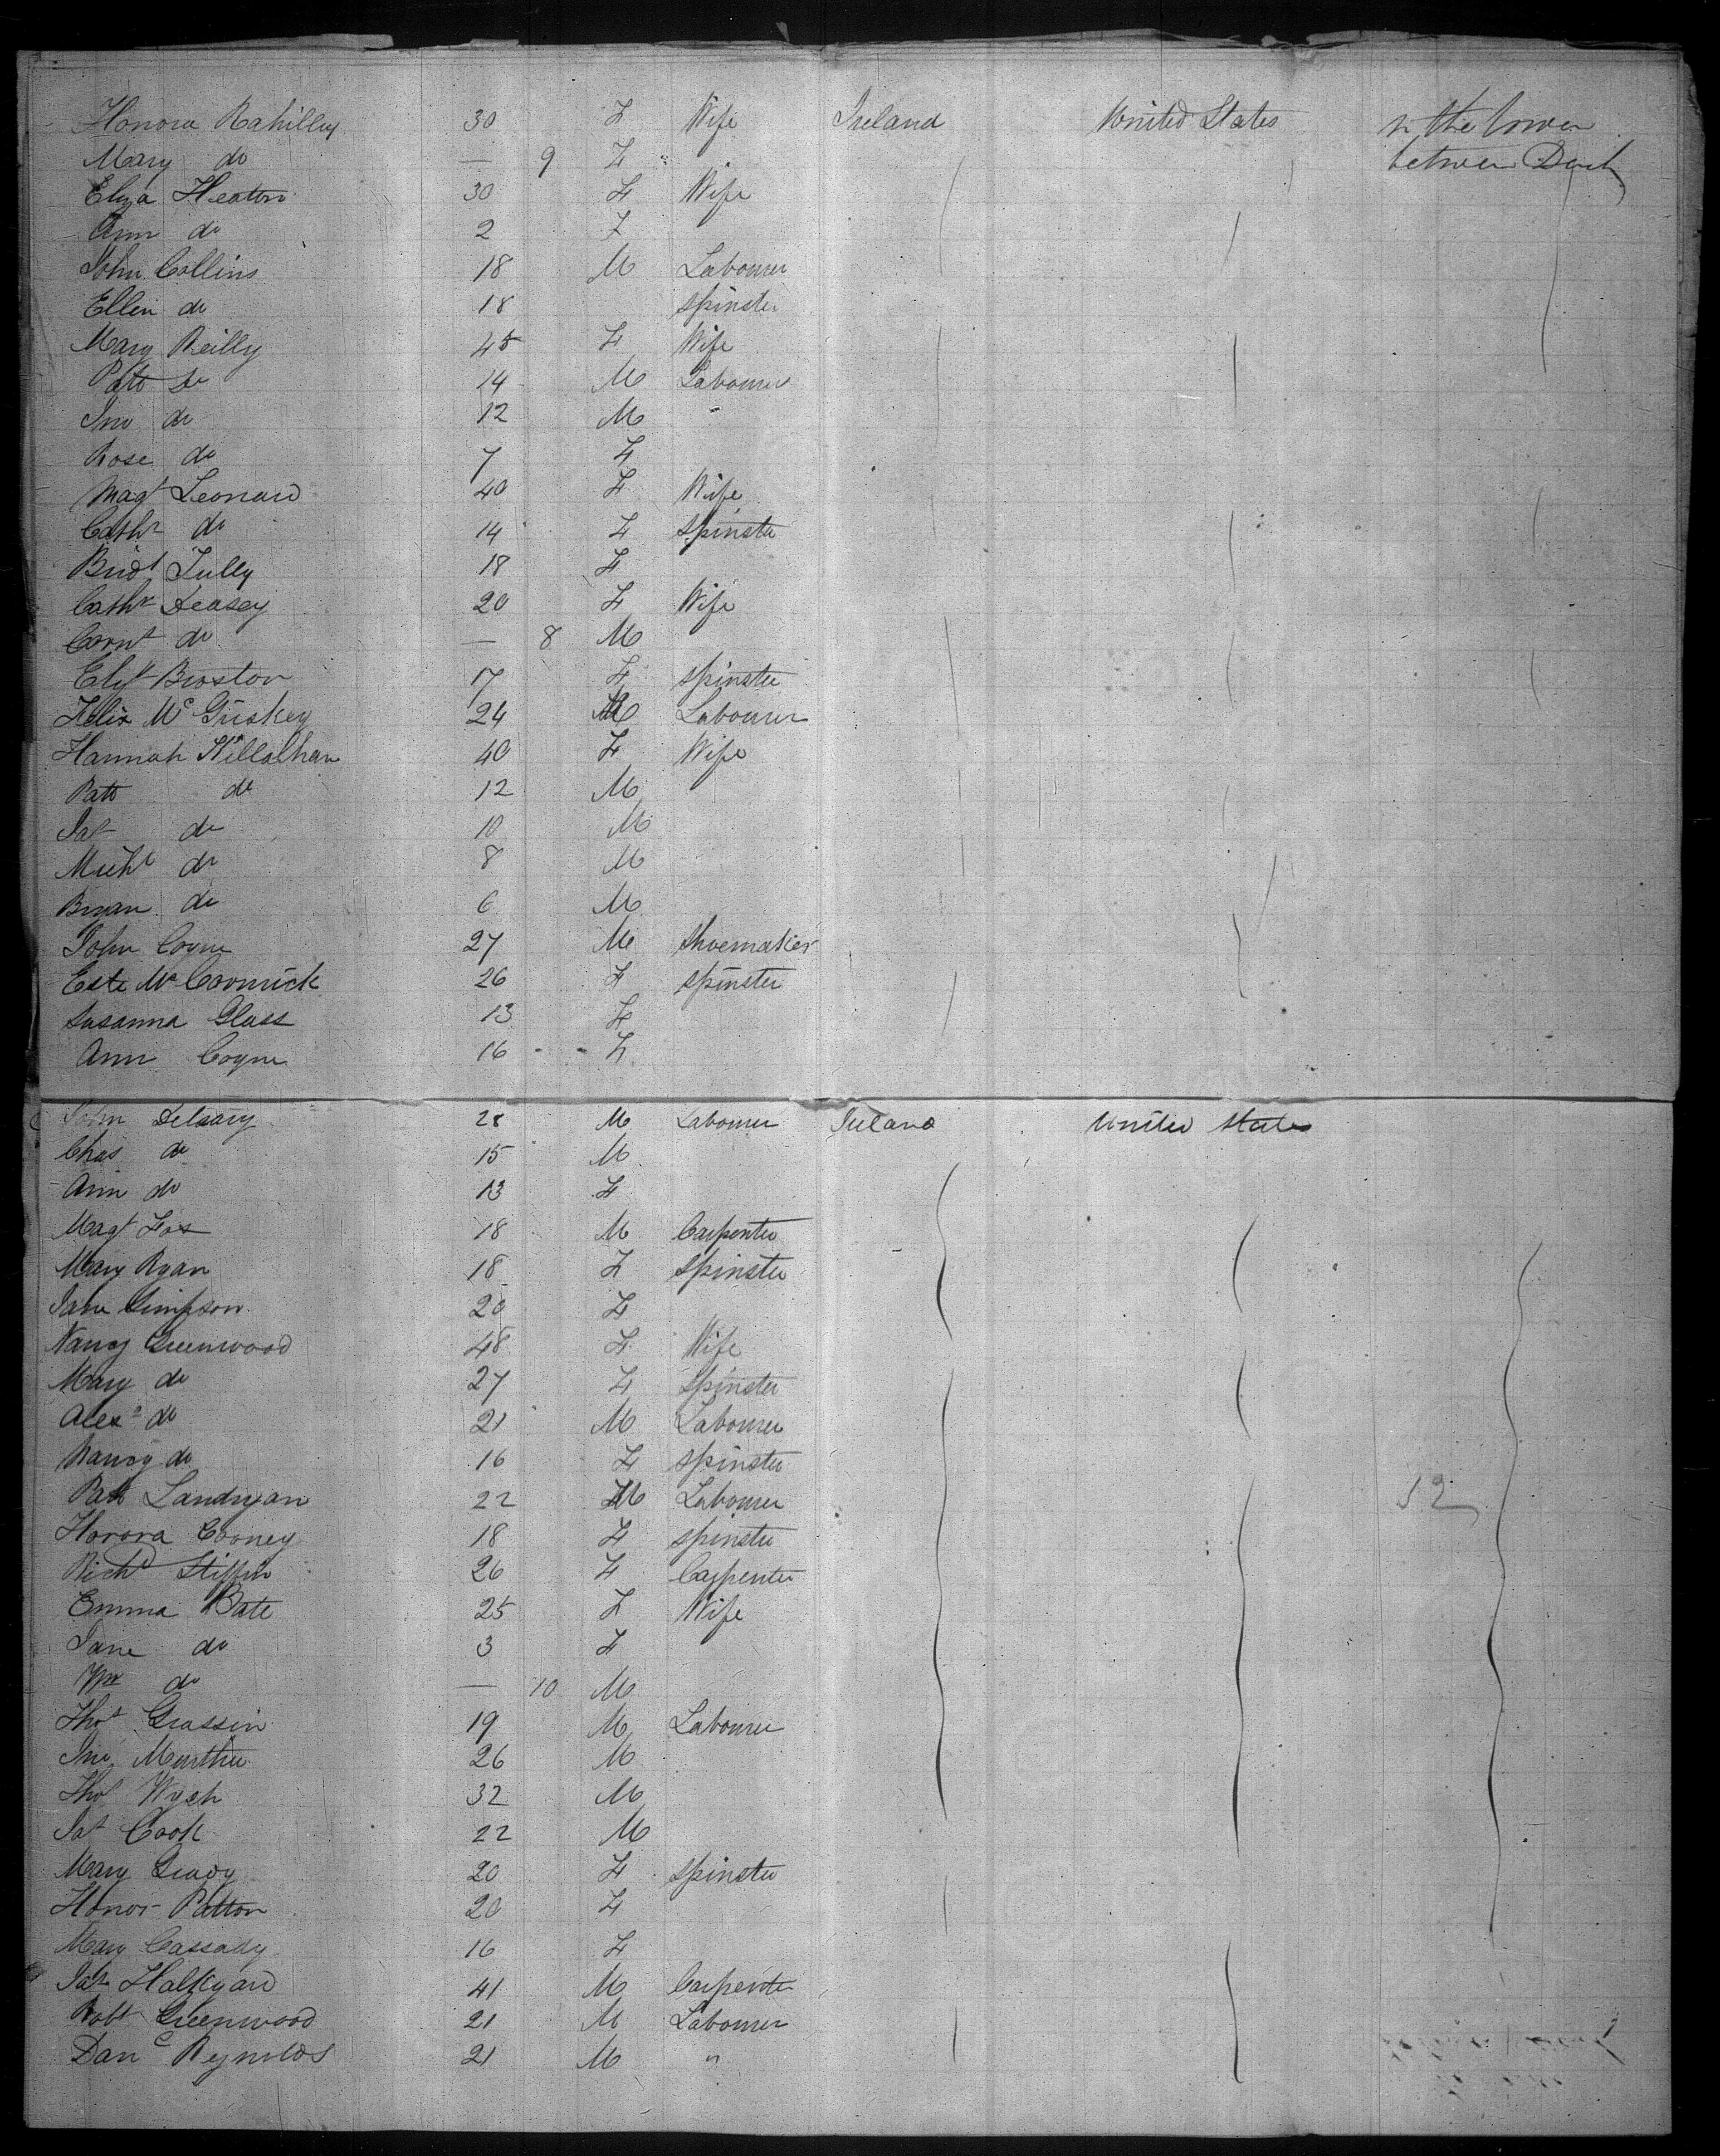 Honora Rahilly 30 F Wife Ireland United States in the lower
Mary do — 9 F " between Deck
Eliza Heaton 30 F Wife
Ann do 2 F
John Collins 18 M Labourer
Ellen do 18 Spinster
Mary Reilly 45 F Wife
Patt do 14 M Labourer
Jno do 12 M "
Rose do 7 F
Magt Leonard 40 F Wife
Cathr do 14 F Spinster
Bridt Tully 18 F
Cathr Deasey 20 F Wife
Cornt do — 8 M
Elizt 17 F Spinster
Felix Mc Guskey 24 M Labourer
Hannah 40 F Wife
Patt do 12 M
Jas do 10 M
Michl do 8 M
Bryan do 6 M
John Coyne 27 M Shoemaker
Este Mc Cormick 26 F Spinster
Susanna Glass 13 F
Ann Coyne 16 F
John Delaary 28 M Labourer Ireland United States
Chas do 15 M
Ann do 13 F
Magt Fox 18 M Carpenter
Mary Ryan 18 F Spinster
Jane Simpson 20 F
Nancy Greenwood 48 F Wife
Mary do 27 F Spinster
Alexr do 21 M Labourer
Nancy do 16 F Spinster
Patt Landrygan 22 M Labourer 52
Honora Cooney 18 F Spinster
Richd Stiffin 26 F Carpenter
Emma Bate 25 F Wife
Jane do 3 F
Wm do — 10 M
Thos Grassin 19 M Labourer
Jno 26 M
Thos Wych 32 M
Jas Cook 22 M
Mary Grady 20 F Spinster
Honor Patton 20 F
Mary Cassady 16 F
Jas Halkyard 41 M Carpenter
Robt Greenwood 21 M Labourer
Danl Reynolds 21 M "